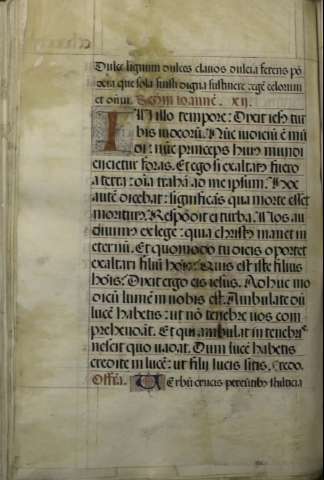 Dulce lignum dulces clavos dulcia ferens pō
dera que sola fuisti digna sustinere regē celorum
et dnm. Secm ioannē. xii.
In illo tempore: Dixit iesꝰ tur
bis iudeorū. Nūc iudiciū ē mū
di: nūc princeps huiꝰ mundi
eiicietur foras. Et ego si exaltatꝰ fuero
a terra: oīa trahā ad me ipsum. Hoc
autē dicebat: significās qua morte esset
moriturꝰ. Respōdit ei turba. Nos au
diuimꝰ ex lege: quia christꝰ manet in
eternū. Et quomodo tu dicis oportet
exaltari filiū hoīs? Quis est iste filius
hoīs? Dixit ergo eis iesus. Adhuc mo
dicū lumē in uobis est. Ambulate dū
lucē habetis: ut nō tenebre uos com
prehendāt. Et qui ambulat in tenebrꝭ
nescit quo uadat. Dum lucē habetis
credite in lucē: ut filij lucis sitis. Credo.
Offm. Uerbū crucis pereūtibꝰ stulticia